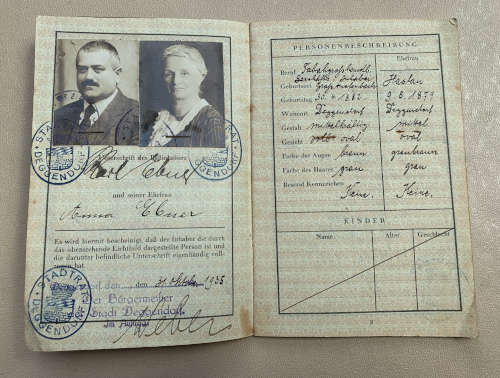 STADTRAT DEGGENDORF
STADTRAT DEGGENDORF
Unterschrift des Paßinhabers
Karl Ebner
und seiner Ehefrau
Anna Ebner
Es wird hiermit bescheinigt, daß der Inhaber die durch
das obenstehende Lichtbild dargestellte Person ist und
die darunter befindliche Unterschrift eigenhändig voll-
zogen hat.
Deggendorf den 31. Oktober 1935
Der Bürgermeister
der Stadt Deggendorf.
STADTRAT DEGGENDORF
PERSONENBESCHREIBUNG
Ehefrau
Beruf
Geburtsort
Geburtstag 1882 9. 8. 1879
Wohnort Deggendorf Deggendorf
Gestalt mittelkräftig mittel
Gesicht oval oval
Farbe der Augen braun graubraun
Farbe des Haares grau grau
Besond. Kennzeichen Keine. Keine.
KINDER
Name Alter Geschlecht
3